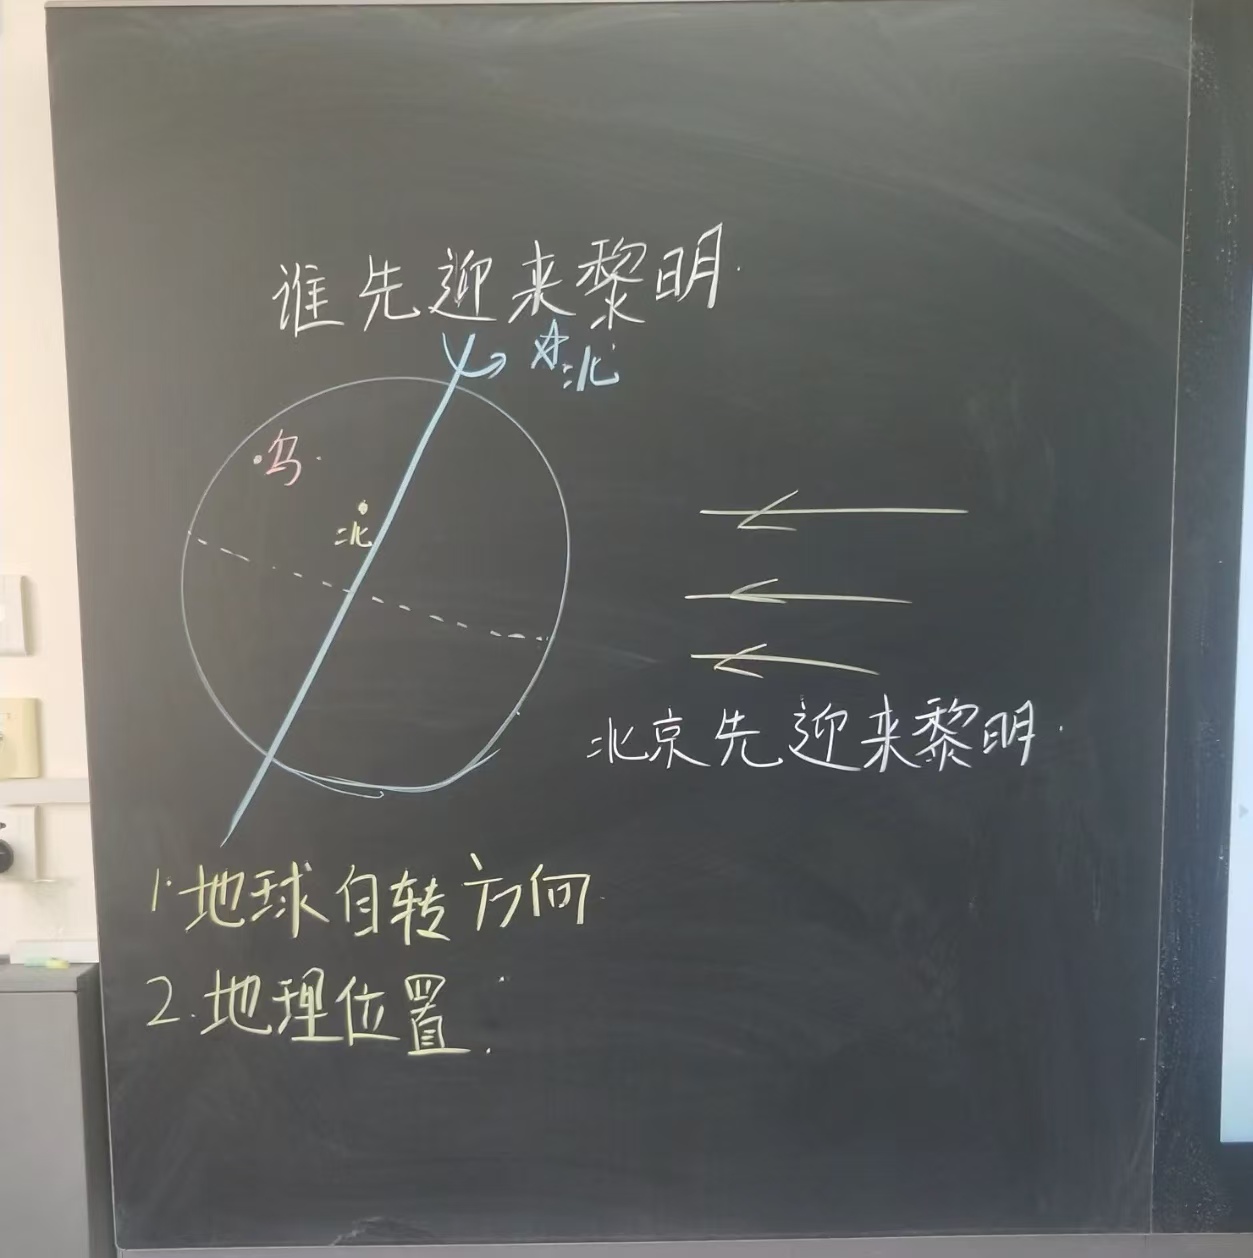 谁先迎来黎明
北
乌
北
北京先迎来黎明
1.地球自转方向
2.地理位置